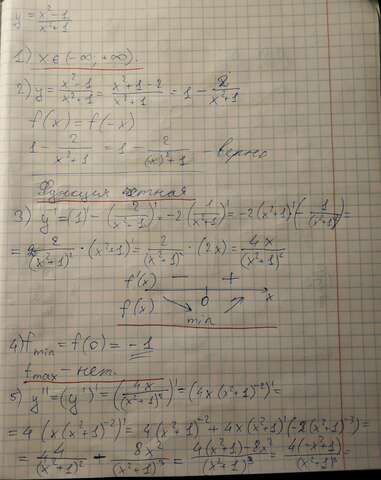 y = x²-1 / x²+1
1) x ∈ (-∞; +∞).
2) y = x²-1 / x²+1 = x²+1-2 / x²+1 = 1 - 2 / x²+1
f(x) = f(-x)
1 - 2 / x²+1 = 1 - 2 / (x)²+1 - верно
Функция четная
3) y' = (1)' - (2 / x²+1)' = -2(1 / x²+1)' = -2(x²+1)'·(-1 / (x²+1)²) =
= 2 / (x²+1)² · (x²+1)' = 2 / (x²+1)² · (2x) = 4x / (x²+1)²
f'(x) - +
f(x) 0 x
min
4) f min = f(0) = -1
f max - нет.
5) y'' = (y')' = (4x / (x²+1)²)' = (4x(x²+1)⁻²)' =
= 4(x(x²+1)⁻²)' = 4(x²+1)⁻² + 4x(x²+1)'(-2(x²+1)⁻³) =
= 4 / (x²+1)² + 8x² / (x²+1)³ = 4(x²+1)-8x² / (x²+1)³ = 4(-x²+1) / (x²+1)³ =